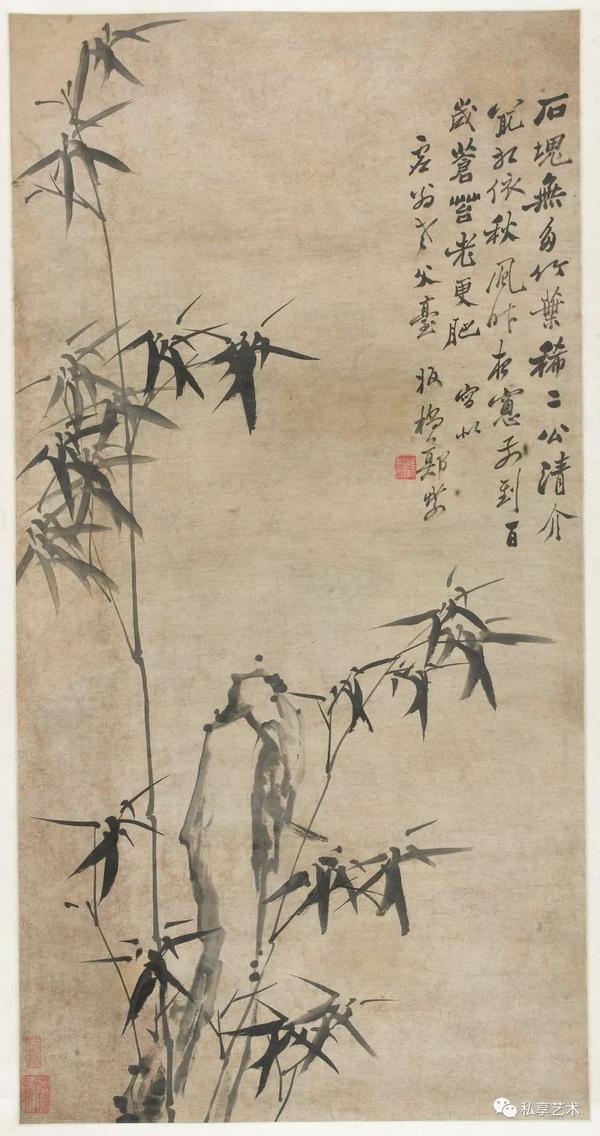 石塊無多竹葉稀二公清介
最相依秋風昨夜窻前到百
歲蒼苔老更肥 寫似
翁老父臺 板橋鄭燮
私享艺术